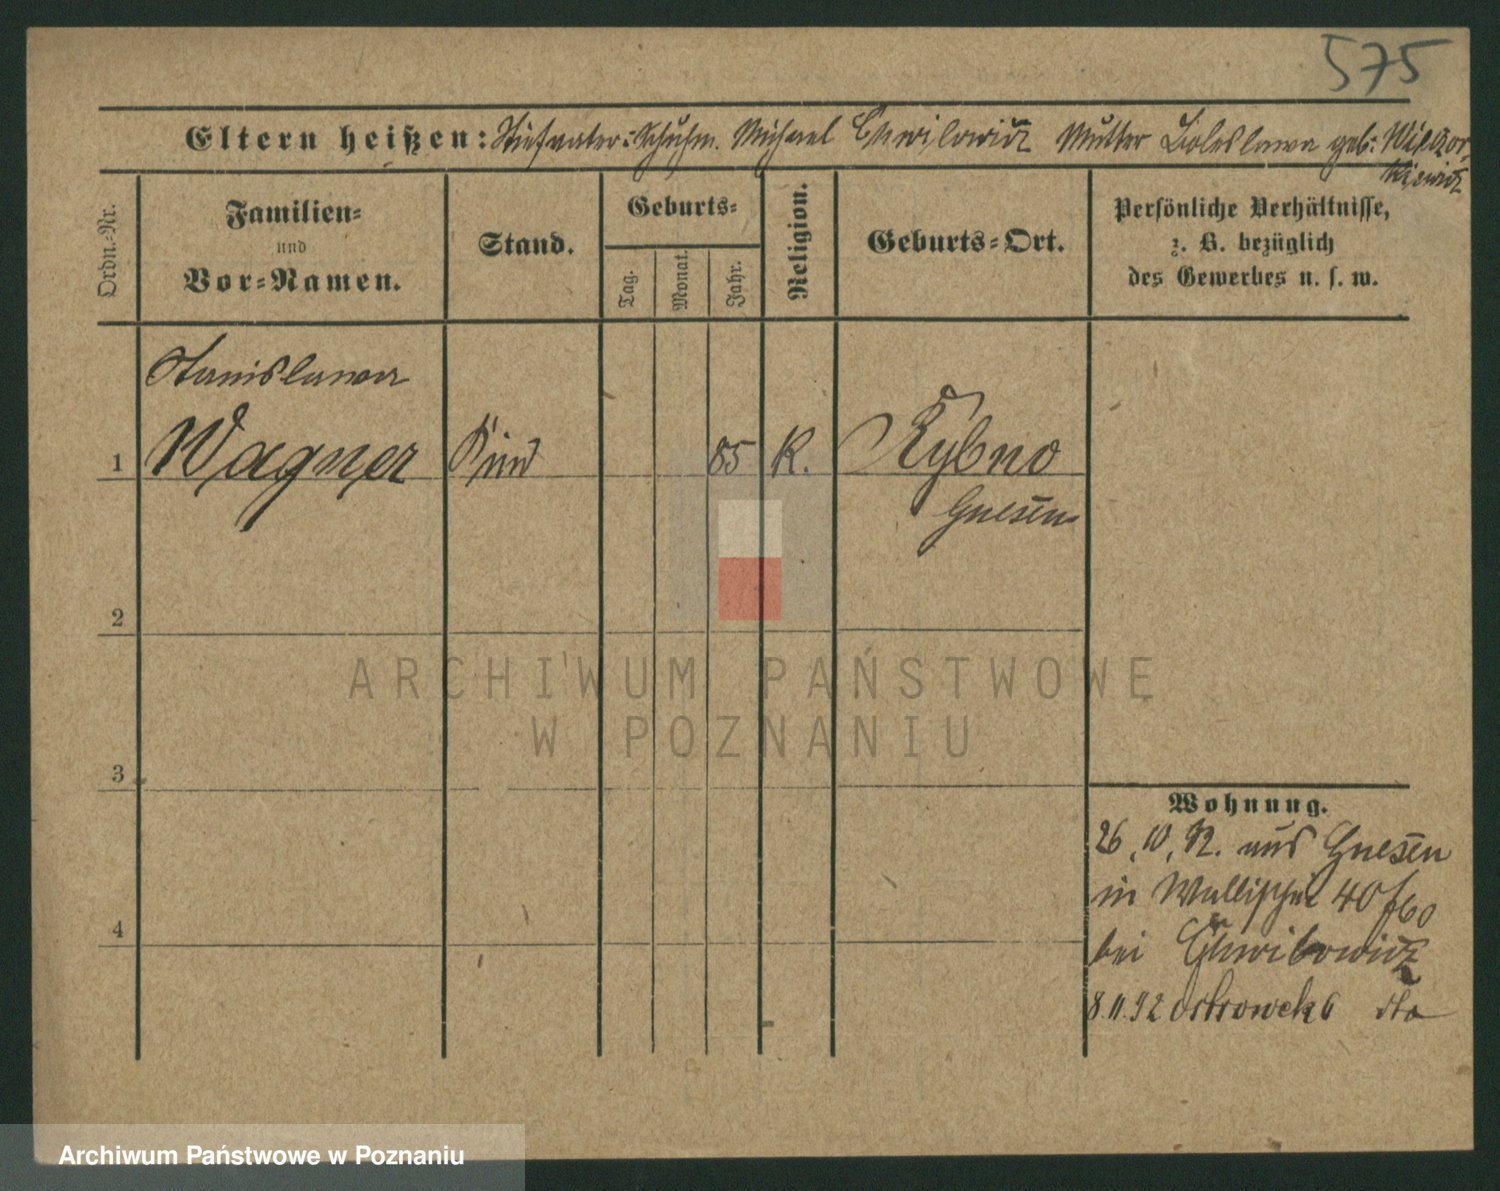 575
Eltern heißen: Stiefvater: Schuhm. Michael Chwilowicz Mutter Boleslawa geb:
Ordn.-Nr.
Familien-
und
Vor-Namen.
Stand.
Geburts-
Tag.
Monat.
Jahr.
Religion.
Geburts-Ort.
Persönliche Verhältnisse,
z. B. bezüglich
des Gewerbes u. s. w.
Stanislawa
1 Wagner Kind 85 K. Rybno
Gnesen
2
3
4
Wohnung.
26.10.92. aus Gnesen
in Wallischei 40
bei Chwilowicz
8.11.92 Ostrowek 6 dto
ARCHIWUM PAŃSTWOWE
W POZNANIU
Archiwum Państwowe w Poznaniu